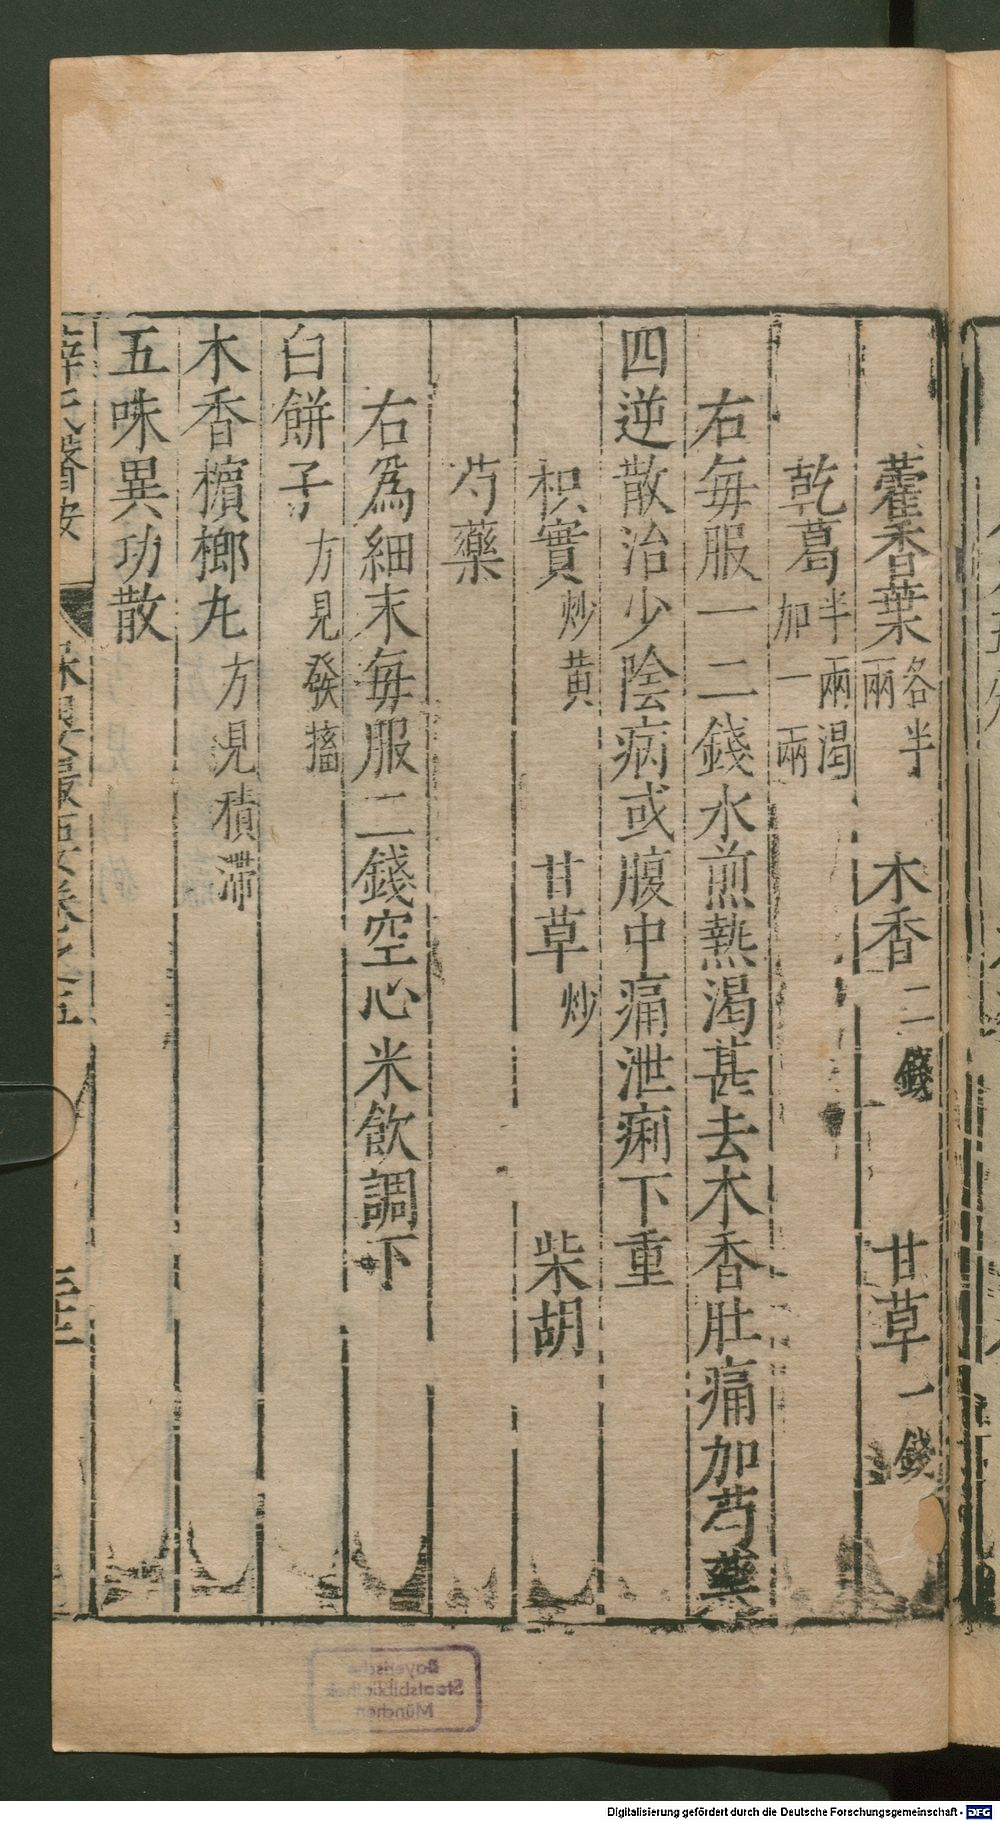 藿香葉各半兩　木香二錢　甘草一錢
乾葛半兩渴加一兩
右每服一二錢水煎熱渴甚去木香肚痛加芍藥
四逆散治少陰病或腹中痛泄痢下重
枳實炒黃　甘草炒　柴胡
芍藥
右爲細末每服二錢空心米飲調下
白餅子方見發搐
木香檳榔丸方見積滯
五味異功散
薛氏醫按　保嬰撮要卷之五
Bayerische
Staatsbibliothek
München
Digitalisierung gefördert durch die Deutsche Forschungsgemeinschaft - DFG